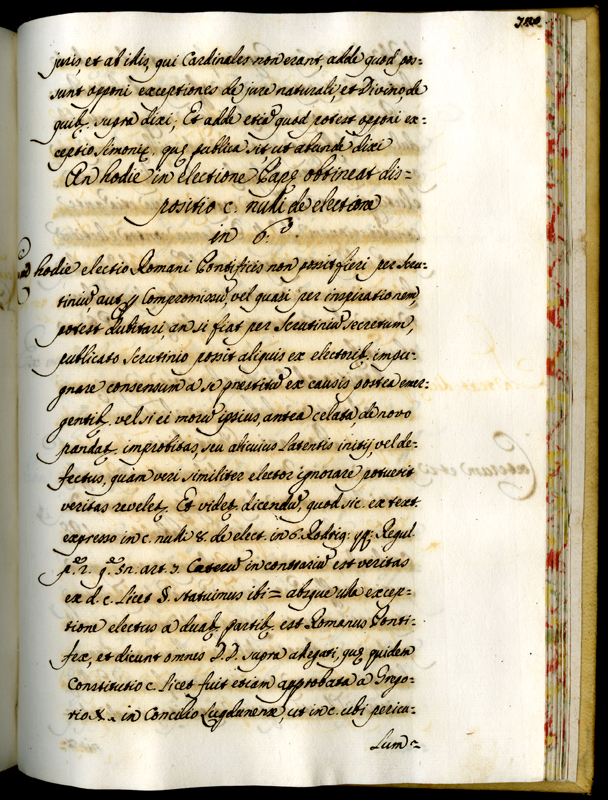 juris, et ab illis, qui Cardinales non erant, adde quod pos-
sunt opponi exceptiones de jure naturali, et Divino, de
quibꝫ supra dixi; Et adde etiā quod potest opponi ex-
ceptio simoniæ, quæ publica sit, ut abunde dixi
An hodie in electione Papæ obtineat dis-
positio c. nulli de electione
in 6.º
hodie electio Romani Pontificis non possit fieri per Scru-
tiniū, aut per Compromissū, vel quasi per inspirationem,
potest dubitari, an si fiat per Scrutiniū secretum,
publicato Scrutinio possit aliquis ex electoribꝫ impu-
gnare consensum a se præstitū ex causis postea emer-
gentibꝫ, vel si ei morū ipsius, antea celata, de novo
pandatꝫ improbitas, seu alicuius latentis vitij, vel de-
fectus, quam veri similiter elector ignorare potuerit
veritas reveletꝫ. Et videtꝫ dicendū, quod sic. ex text.
expresso in c. nulli 8. de elect. in 6. Rodrig: qq. Regul.
art. 3. Cæterū in contrariū est veritas
ex d. c. licet §. statuimus ibi = absque ulla excep-
tione electus a duabꝫ partibꝫ est Romanus Ponti-
fex, et dicunt omnes D.D. supra allegati, quæ quidem
Constitutio c. licet fuit etiam approbata a Grego-
rio X. in Concilio Lugdunense, ut in c. ubi pericu-
lum